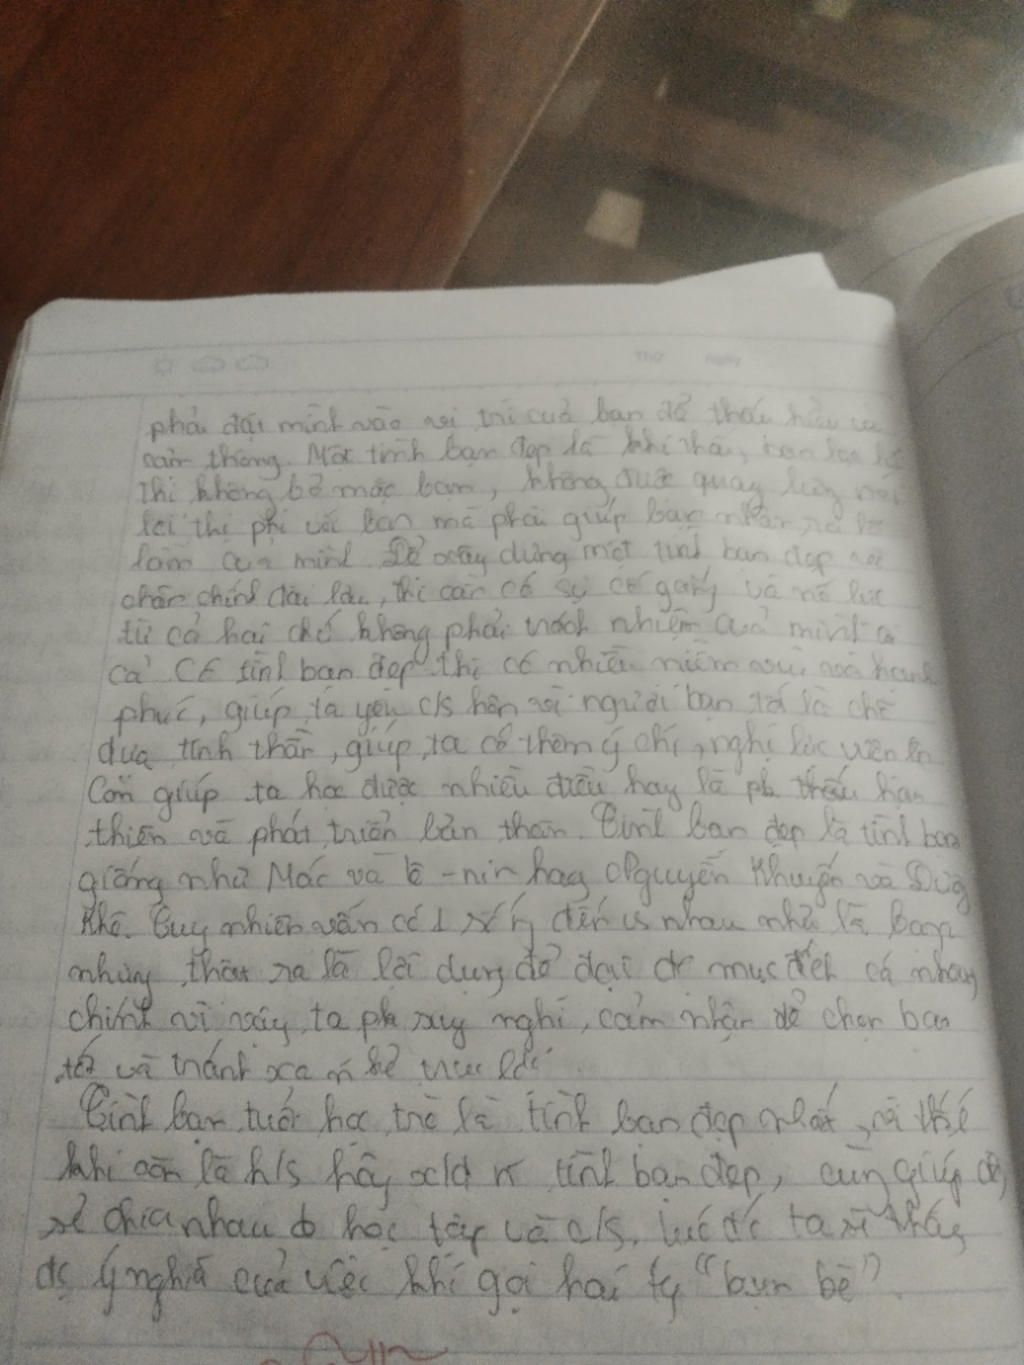 Thứ Ngày
phải đặt mình vào vị trí của bạn để thấu hiểu và
cảm thông. Một tình bạn đẹp là khi thấy bạn
thì không bỏ mặc bạn, không được quay lưng với
lời thị phi với bạn mà phải giúp bạn nhận ra
lầm của mình. Để xây dựng một tình bạn đẹp
chân chính dài lâu, thì cần có sự cố gắng và nỗ lực
từ cả hai chứ không phải trách nhiệm của mình a
cả. Có tình bạn đẹp thì có nhiều niềm vui và hạnh
phúc, giúp ta yêu c/s hơn vì người bạn tốt là chỗ
dựa tinh thần, giúp ta có thêm ý chí, nghị lực vươn lên
Còn giúp ta học được nhiều điều hay lẽ ph thấu
thiện và phát triển bản thân. Tình bạn đẹp là tình bạn
giống như Mác và Lê-nin hay Nguyễn Khuyến và Dương
Khê. Tuy nhiên vẫn có 1 số đến vs nhau như là bạn
nhưng thật ra là lợi dụng để đạt đc mục đích cá nhân
chính vì vậy ta ph suy nghĩ, cảm nhận để chọn bạn
tốt và tránh xa n kẻ trục lợi
Tình bạn tuổi học trò là tình bạn đẹp nhất, vì thế
khi còn là h/s hãy x/d n tình bạn đẹp, cùng giúp đỡ
sẻ chia nhau học tập và c/s. lúc đó ta sẽ thấy
đc ý nghĩa của việc khi gọi hai từ "bạn bè".